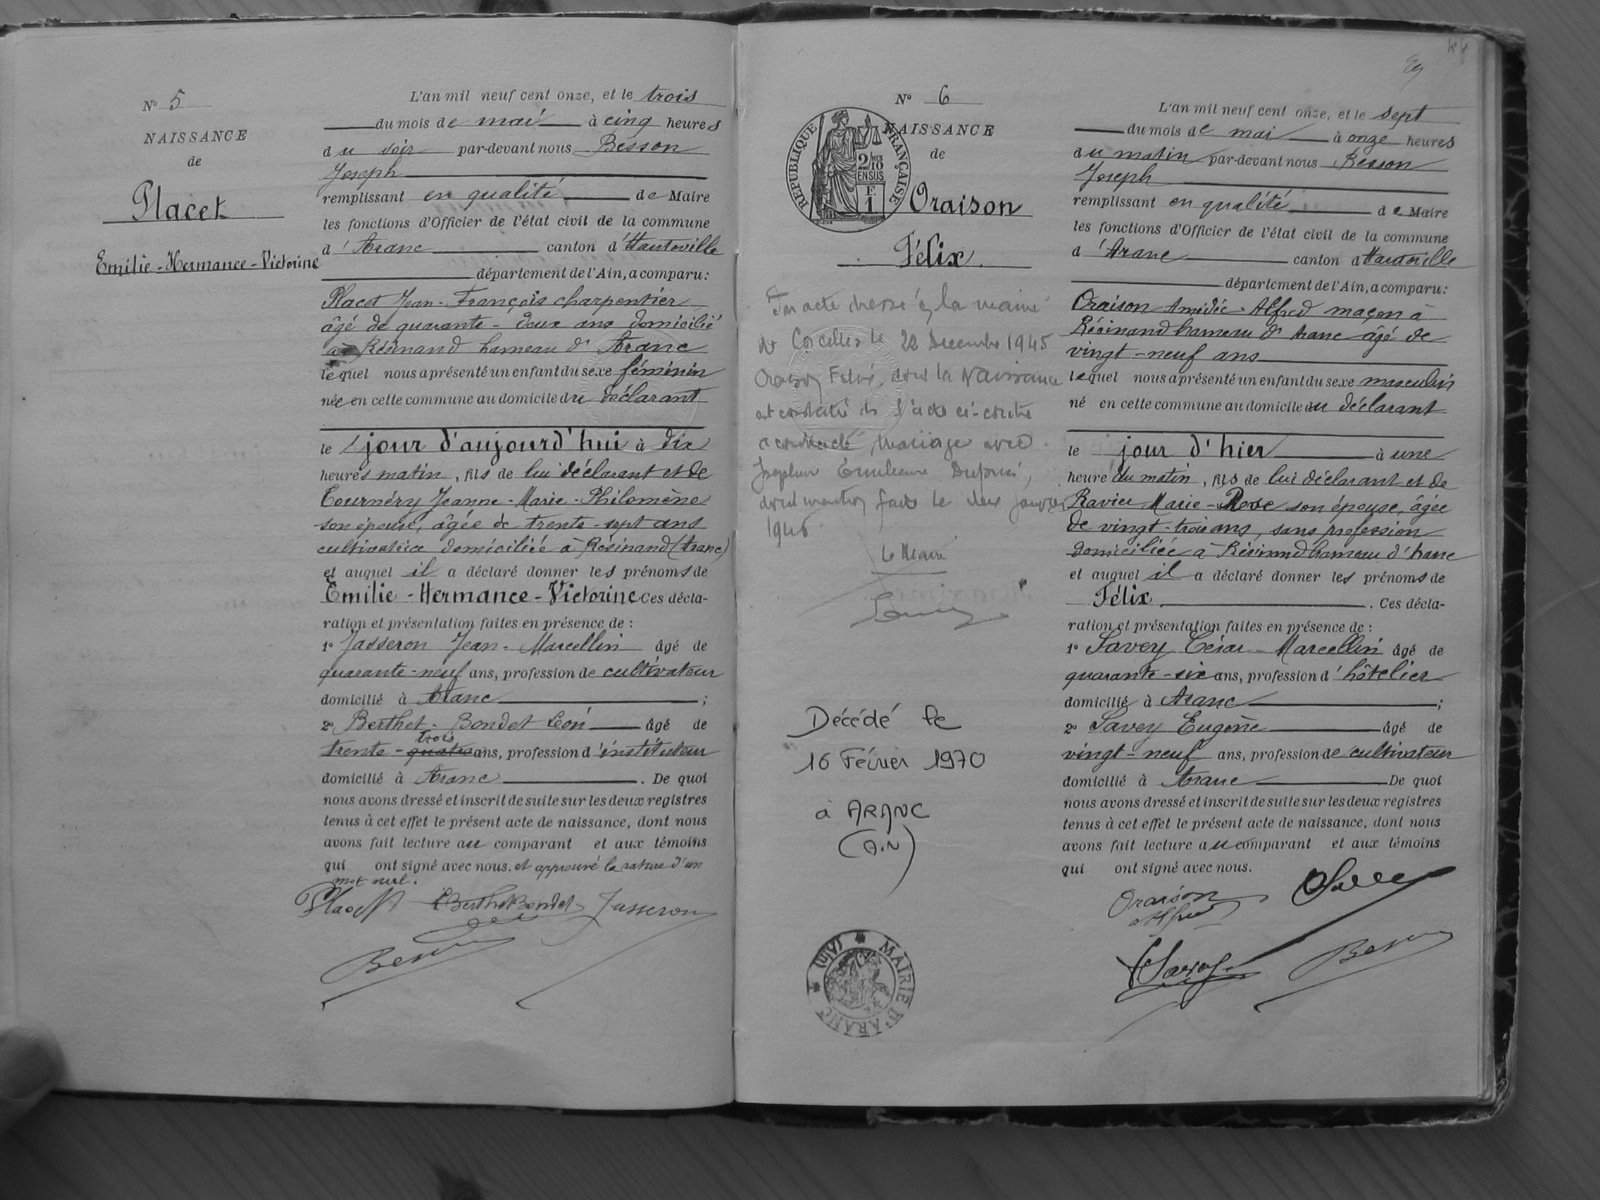 N° 5
NAISSANCE
de
Placet
Emilie-Hermance-Victorine
L'an mil neuf cent onze, et le trois
du mois de mai à cinq heures
du soir par-devant nous Besson
Joseph
remplissant en qualité de Maire
les fonctions d'Officier de l'état civil de la commune
d'Aranc canton d'Hauteville
département de l'Ain, a comparu :
Placet Jean-François charpentier
âgé de quarante-deux ans domicilié
à Résinand hameau d'Aranc
lequel nous a présenté un enfant du sexe féminin
née en cette commune au domicile du déclarant
le jour d'aujourd'hui à dix
heures matin, fils de lui déclarant et de
Tournéry Jeanne-Marie-Philomène
son épouse, âgée de trente-sept ans
cultivatrice domiciliée à Résinand (Aranc)
et auquel il a déclaré donner les prénoms de
Emilie-Hermance-Victorine Ces décla-
ration et présentation faites en présence de :
1° Jasseron Jean-Marcellin âgé de
quarante-neuf ans, profession de cultivateur
domicilié à Aranc ;
2° Berthet-Bondet Léon âgé de
trois
trente-quatre ans, profession d'instituteur
domicilié à Aranc. De quoi
nous avons dressé et inscrit de suite sur les deux registres
tenus à cet effet le présent acte de naissance, dont nous
avons fait lecture au comparant et aux témoins
qui ont signé avec nous. et approuvé la rature d'un
mot nul.
Placet Berthet Bondet Jasseron
Besson
N° 6
NAISSANCE
de
RÉPUBLIQUE FRANÇAISE
Oraison
Félix
Par acte dressé à la mairie
de Corcelles le 22 Décembre 1945
Oraison Félix, dont la Naissance
est constatée ds l'acte ci-contre
a contracté mariage avec
Emilienne
faite le deux janvier
1946
Le Maire
Décédé le
16 Février 1970
à ARANC
(AIN)
MAIRIE D'ARANC (Ain)
L'an mil neuf cent onze, et le sept
du mois de mai à onze heures
du matin par-devant nous Besson
Joseph
remplissant en qualité de Maire
les fonctions d'Officier de l'état civil de la commune
d'Aranc canton d'Hauteville
département de l'Ain, a comparu :
Oraison Amédée-Alfred maçon à
Résinand hameau d'Aranc âgé de
vingt-neuf ans
lequel nous a présenté un enfant du sexe masculin
né en cette commune au domicile du déclarant
le jour d'hier à une
heure du matin, fils de lui déclarant et de
Ravier Marie-Rose son épouse, âgée
de vingt-trois ans, sans profession
domiciliée à Résinand hameau d'Aranc
et auquel il a déclaré donner les prénoms de
Félix. Ces décla-
ration et présentation faites en présence de :
1° Savey César-Marcellin âgé de
quarante-six ans, profession d'hôtelier
domicilié à Aranc ;
2° Savey Eugène âgé de
vingt-neuf ans, profession de cultivateur
domicilié à Aranc De quoi
nous avons dressé et inscrit de suite sur les deux registres
tenus à cet effet le présent acte de naissance, dont nous
avons fait lecture au comparant et aux témoins
qui ont signé avec nous.
Oraison
Alfred
Besson